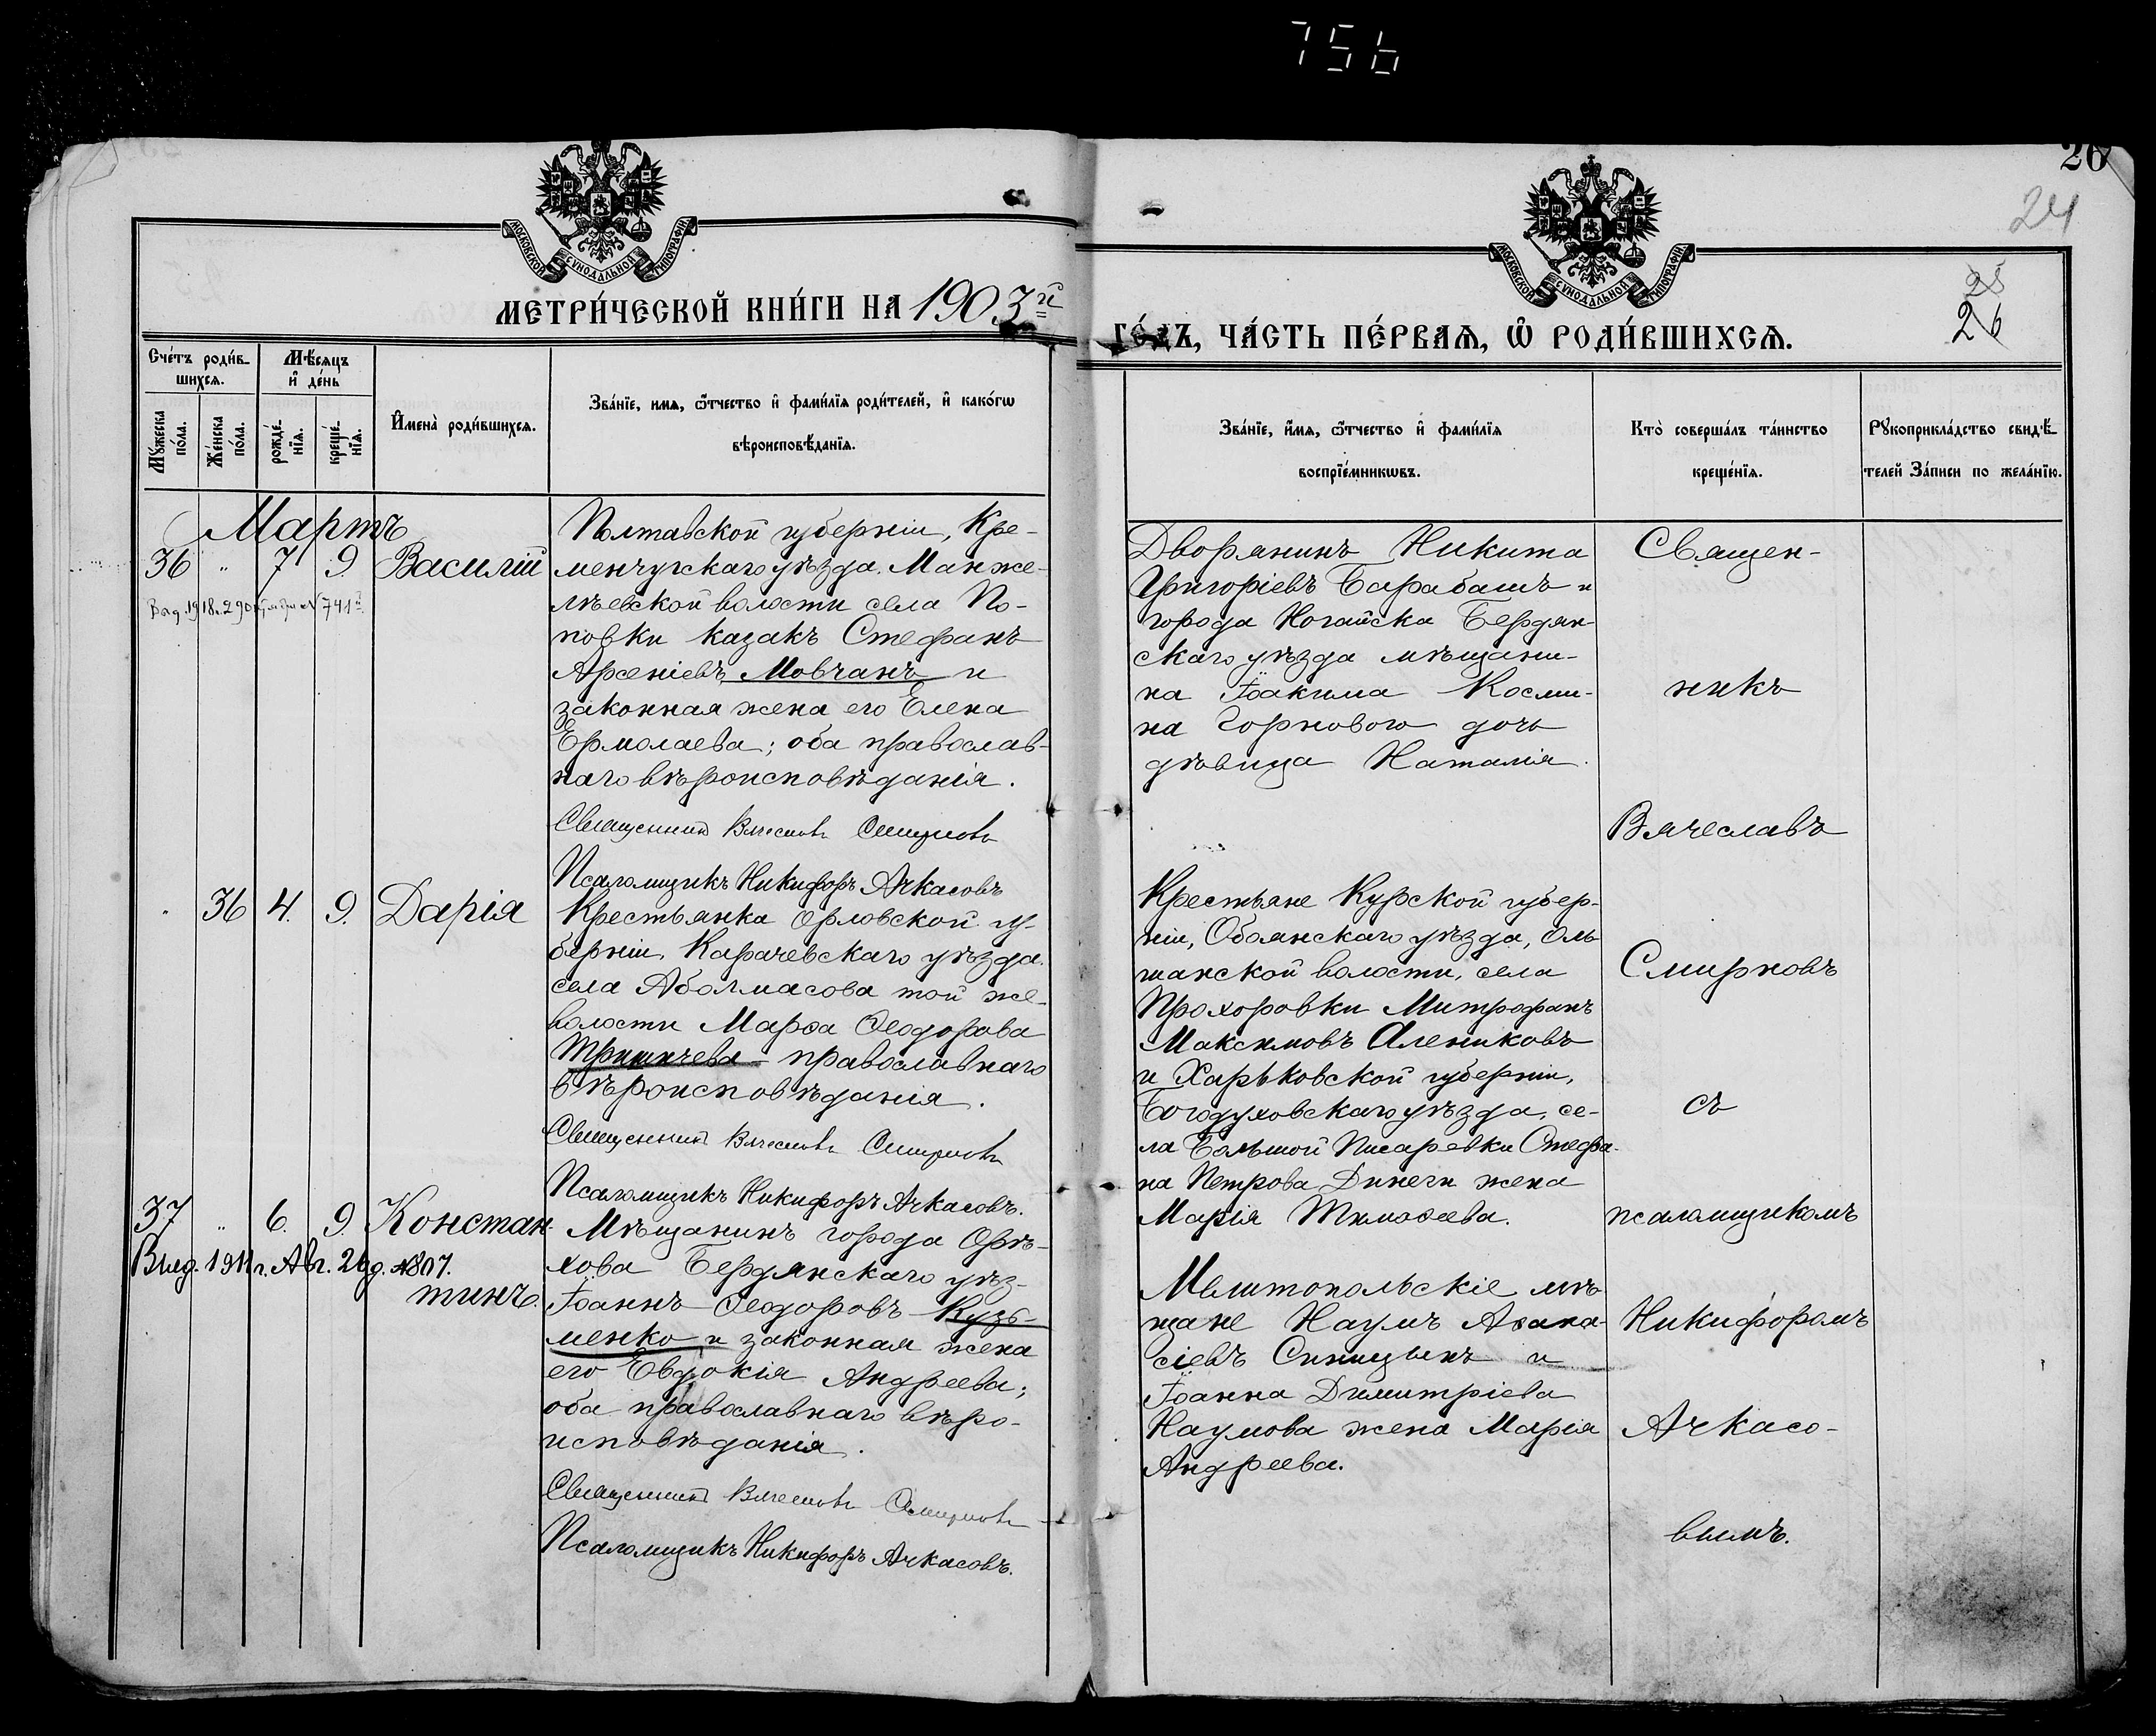 756
26
24
25
26
МОСКОВСКОЙ СѴНОДАЛЬНОЙ ТИПОГРАФІИ
МОСКОВСКОЙ СѴНОДАЛЬНОЙ ТИПОГРАФІИ
МЕТРИ́ЧЕСКОЙ КНИ́ГИ НА 1903й
ГО́ДЪ, ЧА́СТЬ ПЕ́РВАЯ, Ѡ РОДИ́ВШИХСЯ.
Сче́тъ роди́в-
шихся.
Мꙋ́жеска по́ла.
Же́нска по́ла.
Мѣ́сяцъ
и҆ де́нь
рожде́-
нїя.
креще́-
нїя.
И҆мена̀ роди́вшихся.
Зва́нїе, имя, ѻ҆́тчество и҆ фами́лїя роди́телей, и҆ како́гѡ
вѣроисповѣ́данїя.
Зва́нїе, и҆́мя, ѻ҆́тчество и҆ фами́лїя
воспрїе́мникѡвъ.
Кто̀ соверша́лъ та́инство
креще́нїя.
Рꙋкоприкла́дство свидѣ́-
телей За́писи по жела́нїю.
Мартъ
36 " 7 9. Василій
Полтавской губерніи, Кре-
менчугскаго уѣзда. Манже-
лѣевской волости села По-
повки казакъ Стефанъ
Арсеніевъ Мовчанъ и
законная жена его Елена
Ермолаева; оба православ-
наго вѣроисповѣданія.
Священникъ Вячеславъ Смирновъ
Псаломщикъ Никифоръ Ачкасовъ
Дворянинъ Никита
Григоріевъ Барабашъ и
города Ногайска Бердян-
скаго уѣзда мѣщани-
на Іоакима Косми-
на Горнового дочь
дѣвица Наталія.
Священ-
никъ
Вячеславъ
Смирновъ
съ
псаломщикомъ
Никифоромъ
Ачкасо-
вымъ.
36 4. 9. Дарія
Крестьянка Орловской гу-
берніи, Карачевскаго уѣзда.
села Аболмасова той же
волости Марѳа Ѳеодорова
православнаго
вѣроисповѣданія.
Священникъ Вячеславъ Смирновъ
Псаломщикъ Никифоръ Ачкасовъ.
Крестьяне Курской губер-
ніи, Обоянскаго уѣзда, Оль-
шанской волости, села
Прохоровки Митрофанъ
Максимовъ Алениковъ
и Харьковской губерніи,
Богодуховскаго уѣзда, се-
ла Большой Писаревки Стефа-
на Петрова жена
Марія Тимоѳеева.
37 " 6. 9. Констан-
Выд. 1911 г. Авг. 26 д. №807.
тинъ.
Мѣщанинъ города Орѣ-
хова Бердянскаго уѣз-
Іоаннъ Ѳеодоровъ Кузь-
менко и законная жена
его Евдокія Андреева;
оба православнаго вѣро-
исповѣданія.
Священникъ Вячеславъ Смирновъ
Псаломщикъ Никифоръ Ачкасовъ.
Мелитопольскіе мѣ-
щане Наумъ Аѳана-
сіевъ Синицынъ и
Іоанна Димитріева
Наумова жена Марія
Андреева.